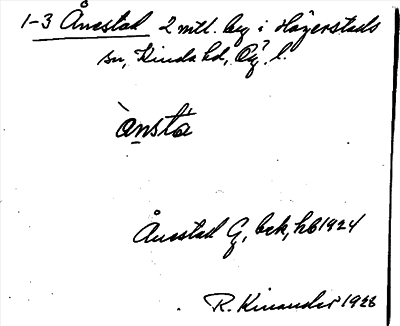 1-3 Ånestad 2 mtl. by i Hägerstads
sn, Kinda hd, Ög. l.
ànsta
Ånestad G, bek, hb 1924
R. Kinander 1928